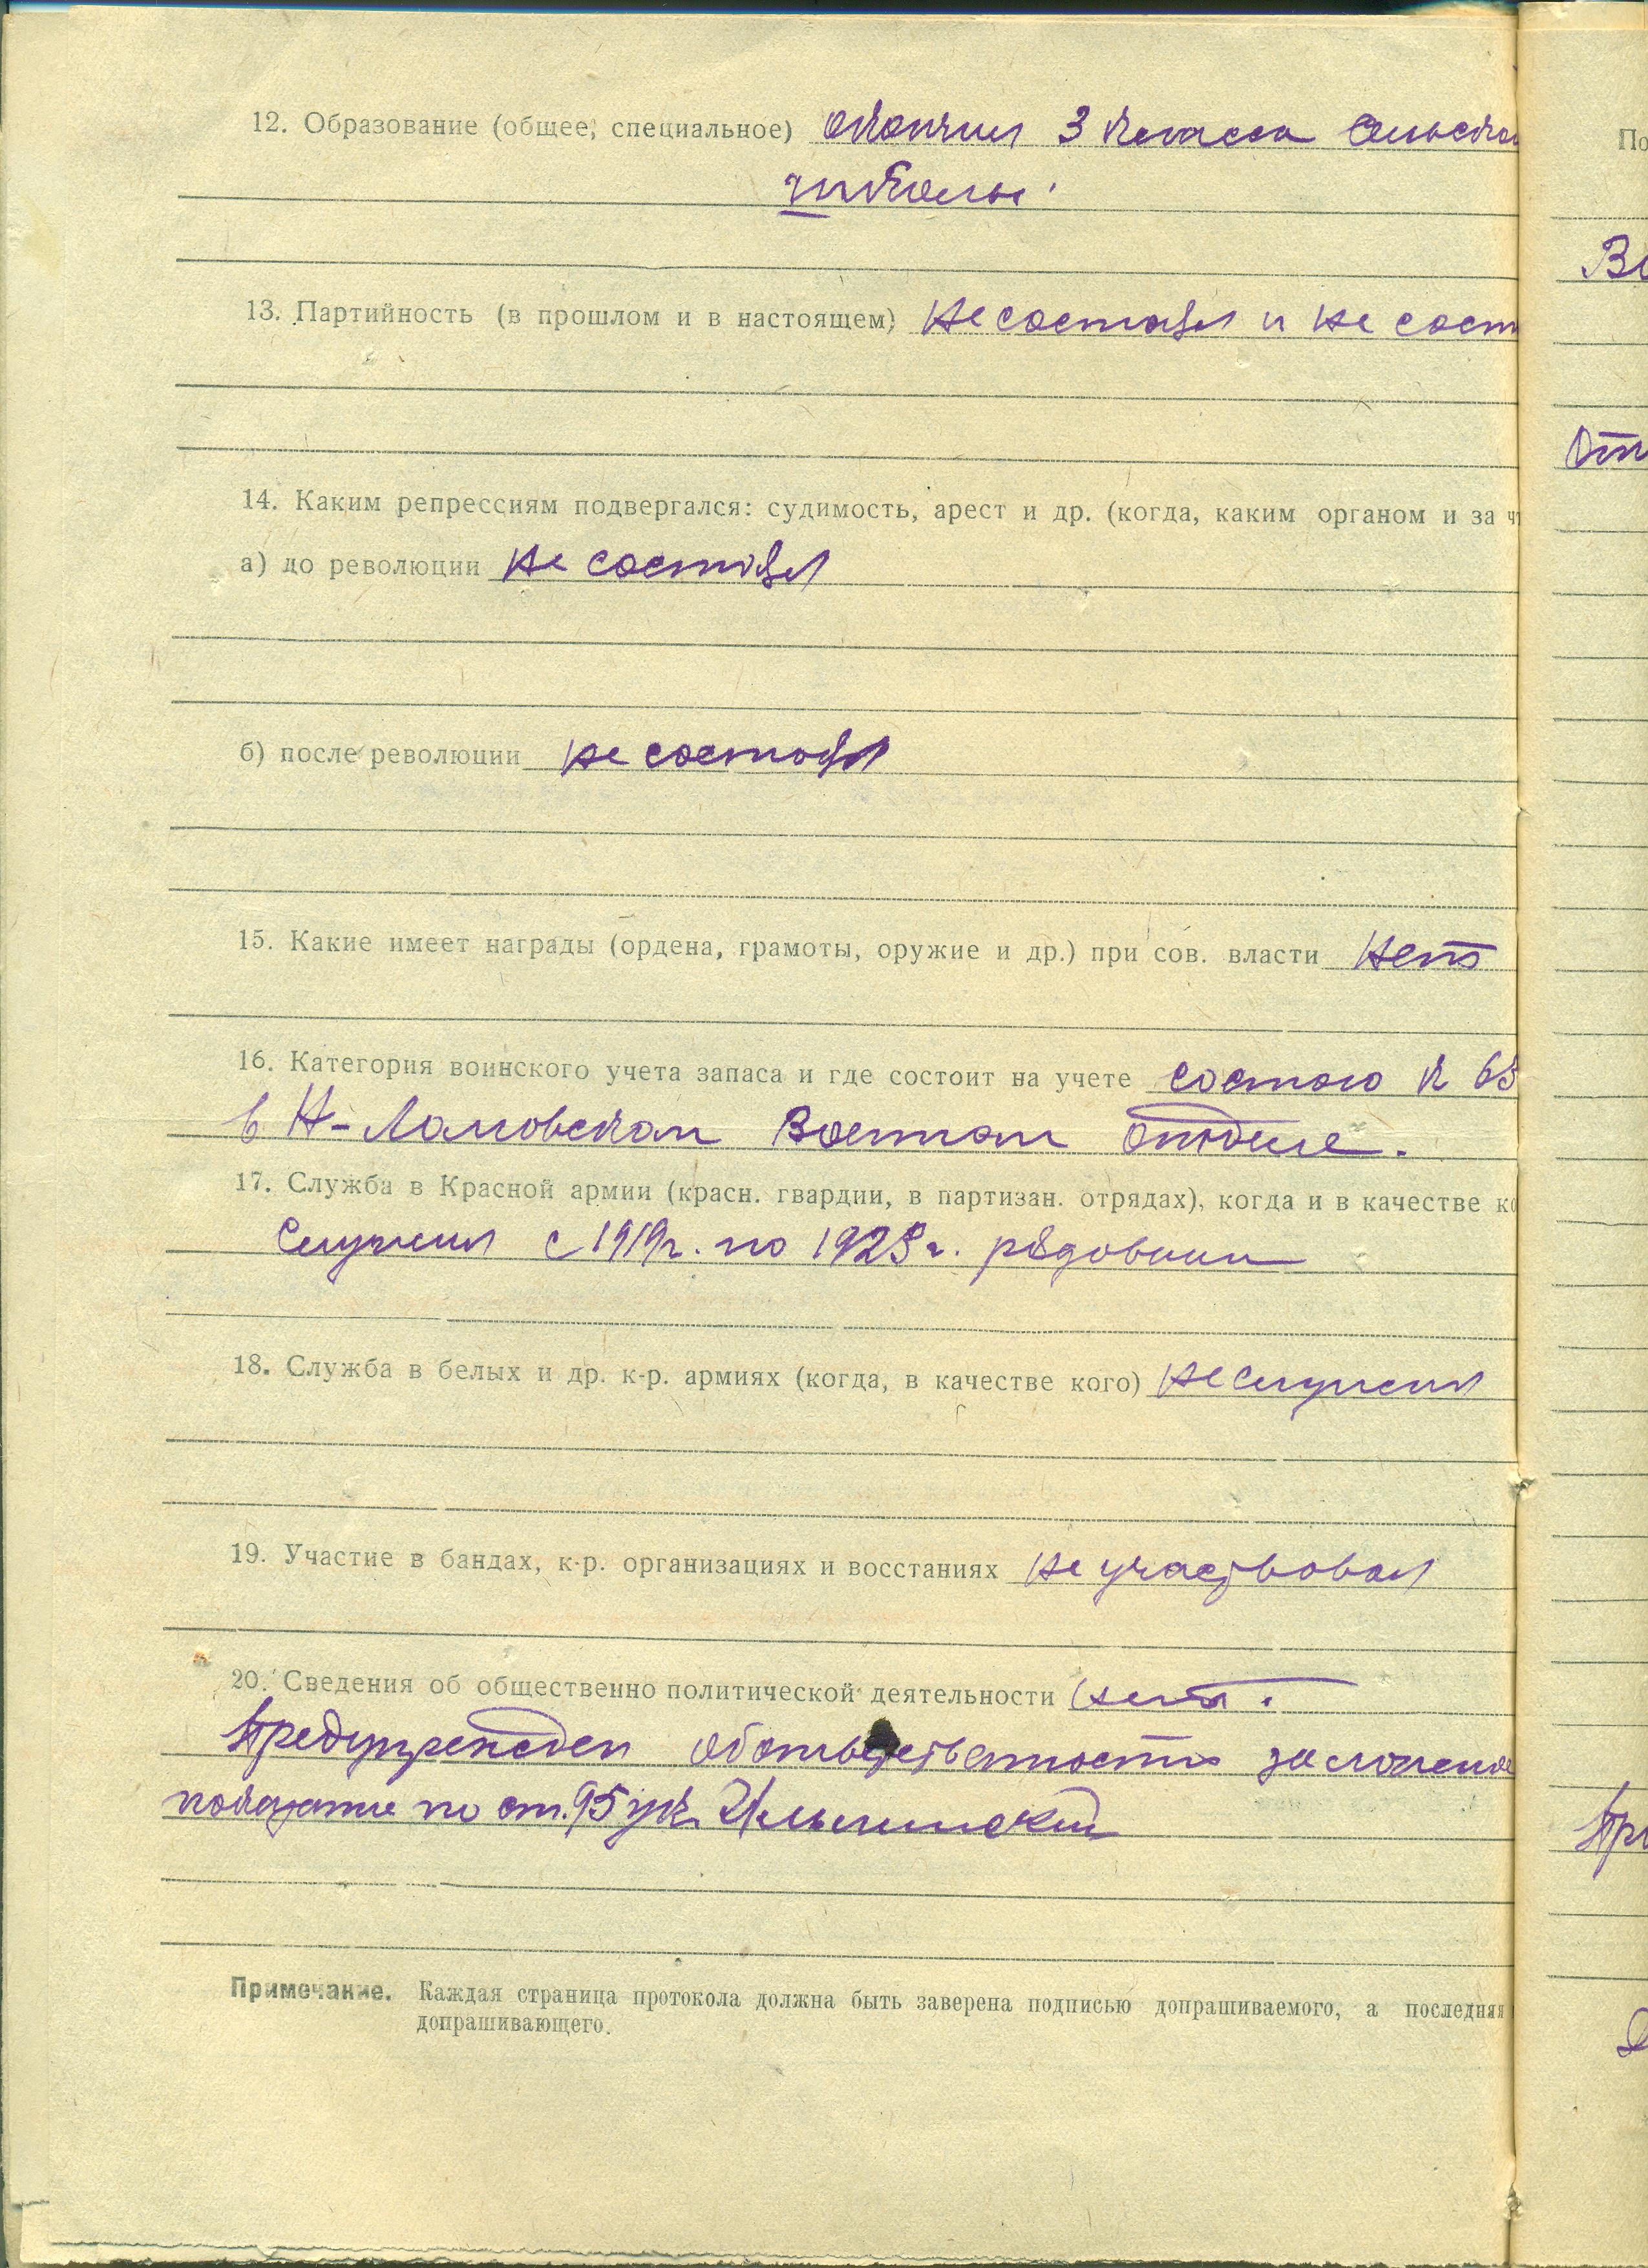 12. Образование (общее, специальное) окончил 3 класса сельской
школы.
13. Партийность (в прошлом и в настоящем) не состоял и не сост
14. Каким репрессиям подвергался: судимость, арест и др. (когда, каким органом и за ч
а) до революции не состоял
б) после революции не состоял
15. Какие имеет награды (ордена, грамоты, оружие и др.) при сов. власти нет
16. Категория воинского учета запаса и где состоит на учете состою
в Н-Ломовском Военном отделе.
17. Служба в Красной армии (красн. гвардии, в партизан. отрядах), когда и в качестве ко
Служил с 1919г. по 1923г. рядовым
18. Служба в белых и др. к-р. армиях (когда, в качестве кого) не служил
19. Участие в бандах, к-р. организациях и восстаниях не участвовал
20. Сведения об общественно политической деятельности нет.
Предупрежден об ответственности за ложные
показание по ст. 95 ук.
Примечание. Каждая страница протокола должна быть заверена подписью допрашиваемого, а последняя
допрашивающего.
По
От